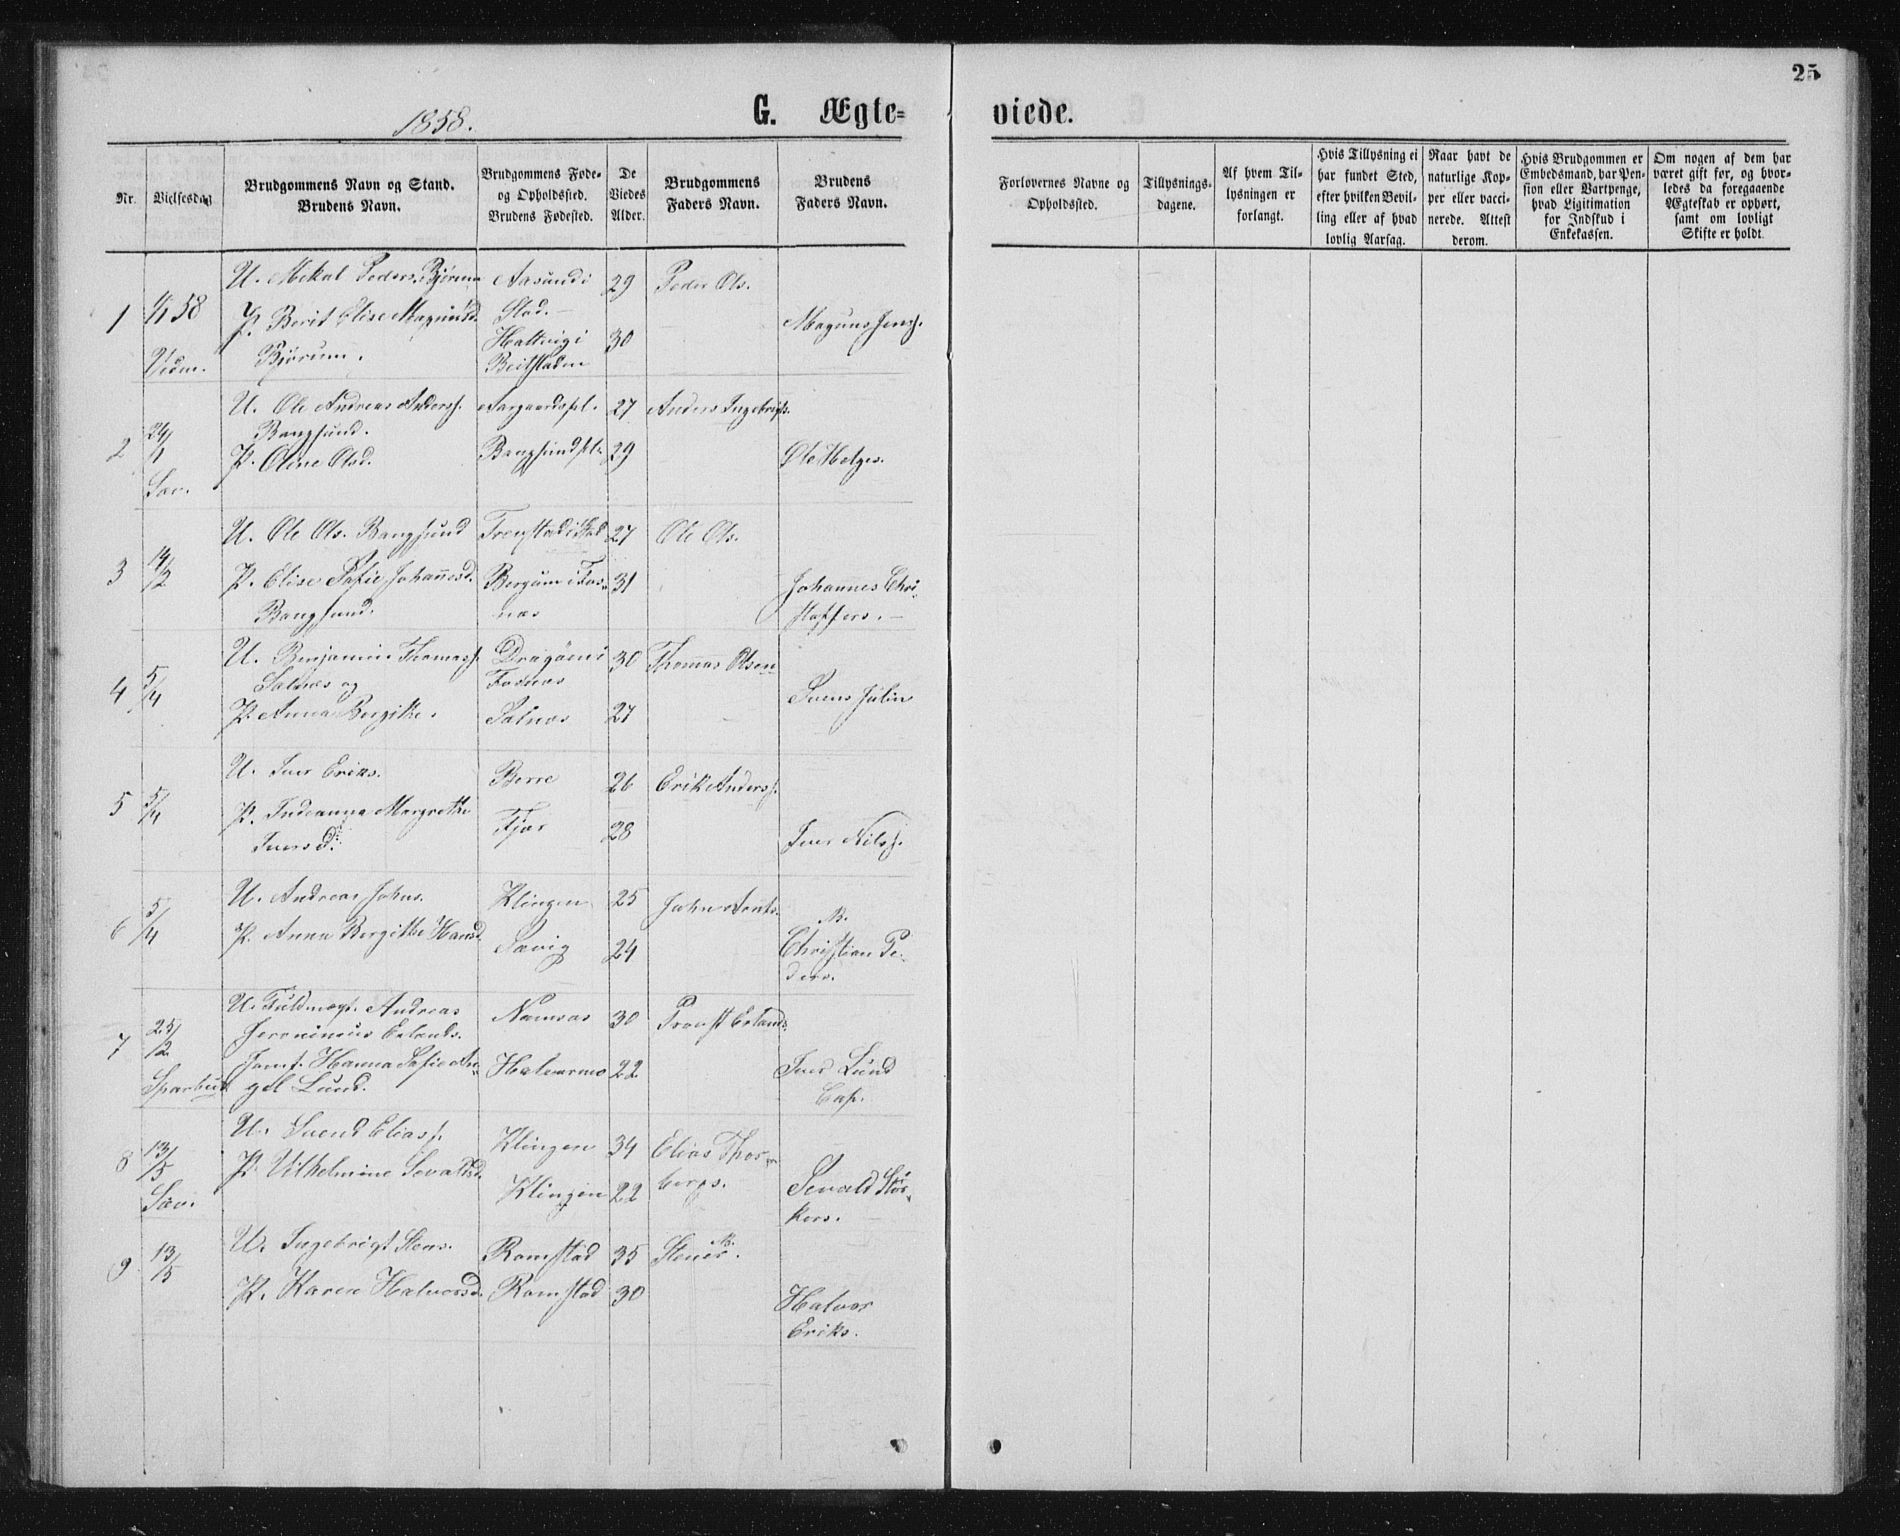 25
1858.
G. Ægte=
viede.
Nr.
Vielsesdag
Brudgommens Navn og Stand.
Brudens Navn.
Brudgommens Føde-
og Opholdssted.
Brudens Fødested.
De
Viedes
Alder.
Brudgommens
Faders Navn.
Brudens
Faders Navn.
Forlovernes Navne og
Opholdssted.
Tillysnings-
dagene.
Af hvem Til-
lysningen er
forlangt.
Hvis Tillysning ei
har fundet Sted,
efter hvilken Bevil-
ling eller af hvad
lovlig Aarsag.
Naar havt de
naturlige Kop-
per eller vacci-
nerede. Attest
derom.
Hvis Brudgommen er
Embedsmand, har Pen-
sion eller Vartpenge,
hvad Ligitimation
for Indskud i
Enkekassen.
Om nogen af dem har
været gift før, og hvor-
ledes da foregaaende
Ægteskab er ophørt,
samt om lovligt
Skifte er holdt.
1
58
U. Mikal Peders. Bjørum
P. Berit Elise Magnusd.
Bjørum.
Aasund i
Stod.
Haltvig i
Beitstaden
29
30
Peder Ols.
Magnus Jens.
2
24/1
Sæv.
U. Ole Andreas Anders.
Bangsund.
P. Oline Olsd.
Aargaardspl.
Bangsundpl.
27
29
Anders Ingebrigts.
Ole Helges.
3
14/2
U. Ole Ols. Bangsund
P. Elise Sofie Johannesd.
Bangsund.
Tronstad i Stod
Bergum i Fos-
næs
27
31
Ole Ols.
Johannes Chri-
stoffers.
4
5/4
U. Benjamin Thomas.
Salnæs og
P. Anna Bergitte.
Dragøen i
Fosnæs
Salnæs
30
27
Thomas Olsen
Svens Julin
5
5/4
U. Iver Eriks.
P. Indianna Margrethe
Iversd.
Berre
Fjær
26
28
Erik Anders.
Iver Nils.
6
5/4
U. Andreas Johns.
P. Anna Bergitte Hansd.
Klingen
Sævig
25
24
John Arnts.
N.
Christian Pe-
ders.
7
25/2
Sparbu
U. Fuldmægt. Andreas
Jeronimus Erlands.
Jomf. Hanna Sofie An-
gel Lund.
Namsos
Halvarmo
30
22
Provst Erlands.
Iver Lund
Cap.
8
13/5
Sæv.
U. Svend Elias.
P. Vilhelmine Sevaldsd.
Klingen
Klingen
34
22
Elias Thor-
bergs.
Sevald Stør-
kers.
9
13/5
U. Ingebrigt Stens.
P. Karen Halvorsd.
Romstad
Romstad
35
30
Stener N.
Halvor
Eriks.